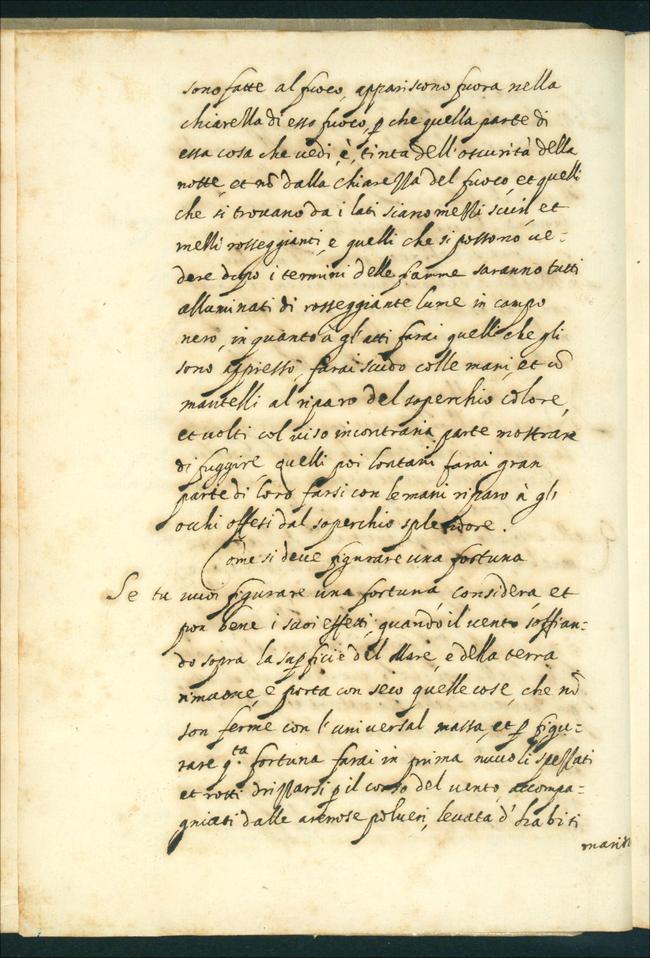 sono fatte al fuoco, appariscono fuora nella
chiarella di esso fuoco, p che quella parte di
essa cosa che uedi, è, tinta dell'oscurità della
notte, et nõ dalla chiarezza del fuoco, et quelli
che si trouano da i lati siano mezzi scuri, et
mezzi rosseggianti, e quelli che si possono ue-
dere dopo i termini delle fiamme saranno tutti
alluminati di rosseggiante lume in campo
nero, in quanto à gl'atti farai quelli che gli
sono appresso, farai scudo colle mani, et cõ
mantelli al riparo del soperchio colore,
et uolti col uiso in contraria parte mostrare
di fuggire quelli poi lontani farai gran
parte di loro farsi con le mani riparo à gli
occhi offesi dal soperchio splendore.
Come si deue figurare una fortuna
Se tu uuoi figurare una fortuna considera, et
pon bene i suoi effetti, quando il uento soffian-
do sopra la supficie del Mare, e della terra
rimuoue, e porta con seco quelle cose, che nõ
son ferme con l'uniuersal massa, et p figu-
rare q.ta fortuna farai in prima nuuoli spezzati
et rotti drizzarsi p il corso del uento, accompa-
gniati dalle arenose polueri, leuata d'